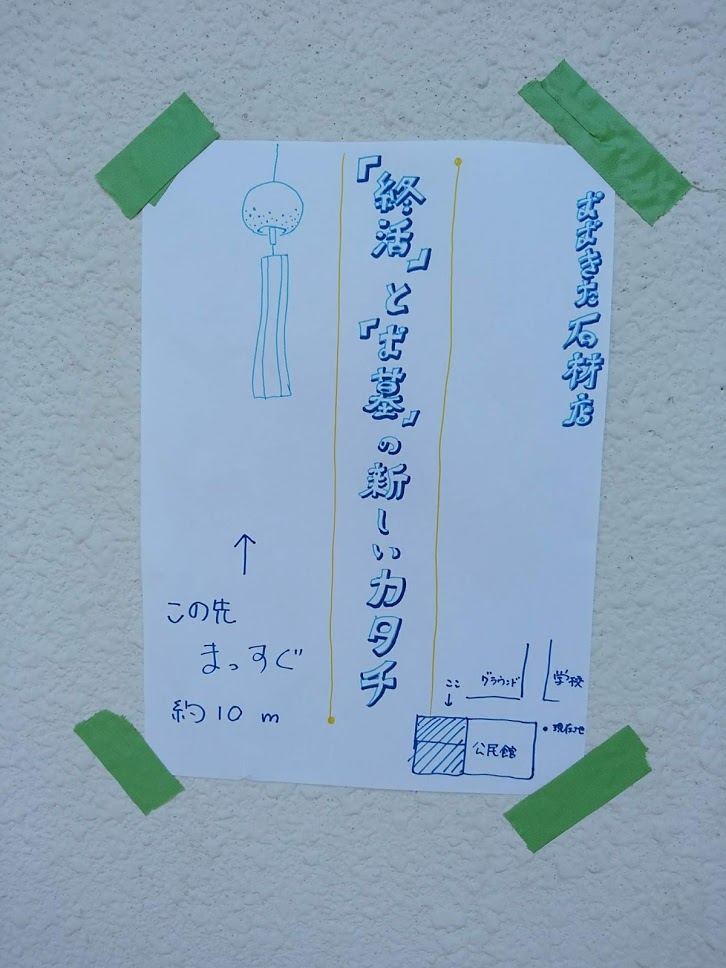 おおきた石材店
『終活』と『お墓』の新しいカタチ
↑
この先
まっすぐ
約10m
ここ
↓
グラウンド
学校
公民館
・現在地